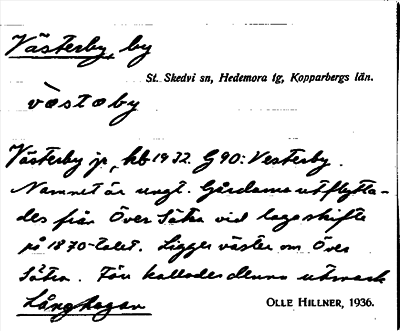 Västerby, by
St. Skedvi sn, Hedemora tg, Kopparbergs län.
västəby
Västerby jr, kb 1932. G 90: Vesterby.
Namnet är ungt. Gårdarna utflytta-
des från Över Sätra vid lagaskifte
på 1870-talet. Ligger väster om Över
Sätra. Förr kallades denna utmark
Långhagan
OLLE HILLNER, 1936.